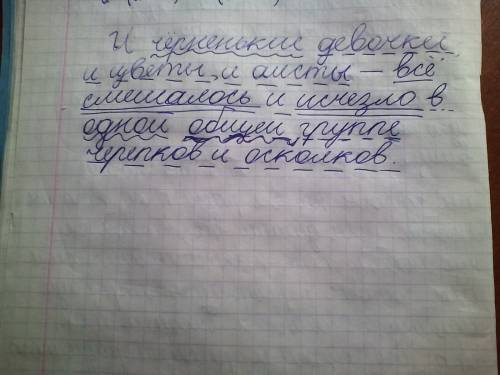 И чёрненькие девочки,
и цветы, и аисты – всё
смешалось и исчезло в
одной общей группе
черепков и осколков.